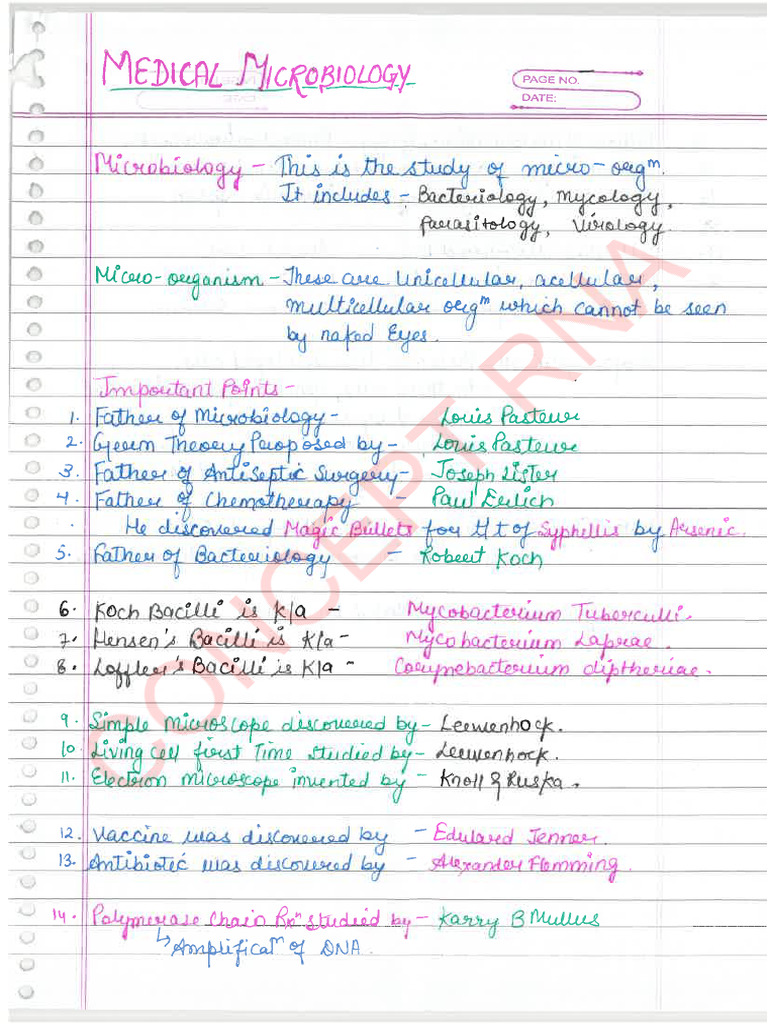 MEDICAL MICROBIOLOGY
PAGE NO.
DATE:
Microbiology - This is the study of micro-orgm.
It includes - Bacteriology, Mycology,
Parasitology, Virology.
Micro-organism - These are Unicellular, acellular,
multicellular orgm which cannot be seen
by naked Eyes.
Important Points -
1. Father of Microbiology- Louis Pasteur
2. Germ Theory Proposed by- Louis Pasteur
3. Father of Antiseptic Surgery- Joseph Lister
4. Father of Chemotherapy - Paul Erlich
. He discovered Magic Bullets for t/t of Syphillis by Arsenic.
5. Father of Bacteriology - Robert Koch
6. Koch Bacilli is K/a - Mycobacterium Tuberculli.
7. Hensen's Bacilli is K/a- Mycobacterium Laprae.
8. Loffler's Bacilli is K/a - Corynebacterium diptheriae.
9. Simple microscope discovered by- Leewenhock.
10. Living cell first Time studied by- Leewenhock.
11. Electron microscope invented by - Knoll & Ruska.
12. Vaccine was discovered by - Edward Jenner.
13. Antibiotic was discovered by - Alexander Flemming.
14. Polymerase Chain Rxn studied by- Karry B Mullus
↳ Amplificatn of DNA.
CONCEPT RNA